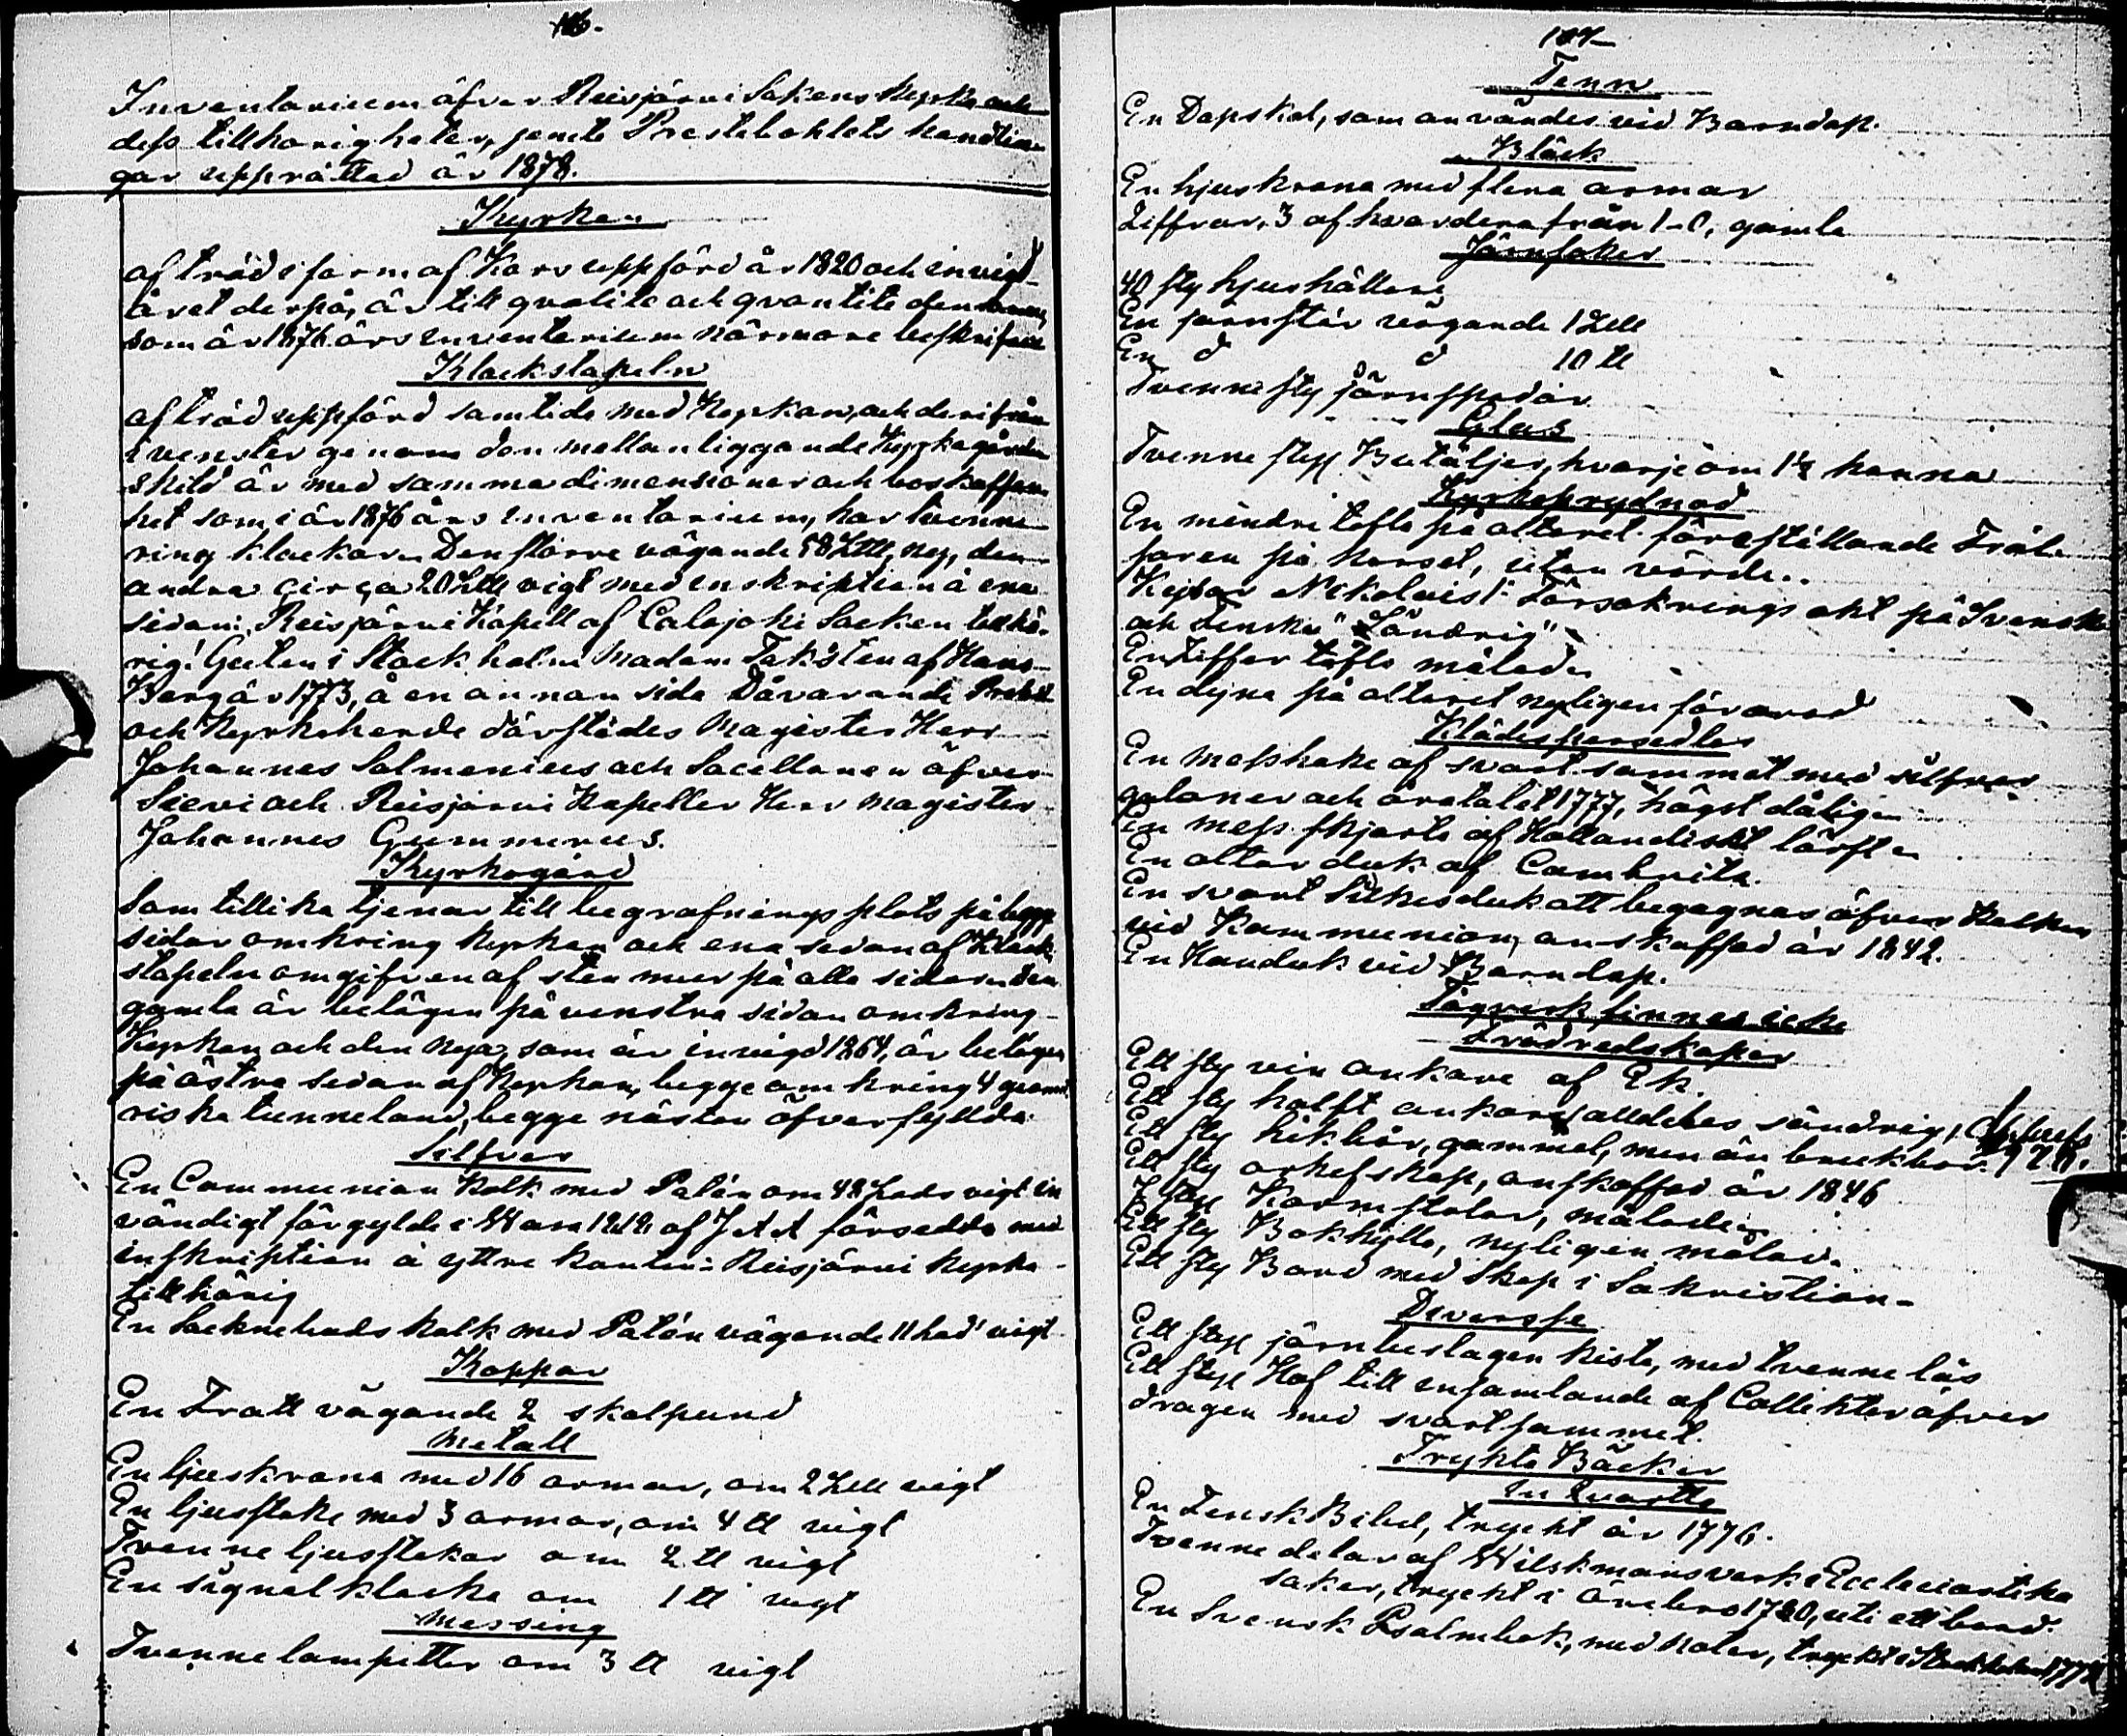 116.
Inventarium öfver Reisjärvi Sokens Kyrka och
dess tillhörigheter, jemte Prestebohlets handlin-
gar upprättad år 1878.
Kyrkan
af träd i form af Kors uppförd år 1820 och invigd
året derpå, är till qvalite och qvantite densamma,
som är 1876 års inventarium närmare beskrifven
Klockstapeln
af träd uppförd samtide med Kyrkan, och derifrån
i venster genom den mellanliggande Kyrkogården
skild är med samma dimensioner och beskaffen-
het som i år 1876 års inventarium, har tvenne
ring klockor. Den större vägande 58 L℔, ny, den
andra circa 20 L℔ vigt med inskription å ena
sidan: Reisjärvi Kapell af Calajoki Socken tillhö-
rig! Guten i Stockholm Madam Fahlsten af Hans
Berg år 1773, å en annan sida Dåvarande Probst
och Kyrkoherde därstädes Magister Herr
Johannes Salmenius och Sacellanen öfver
Sievi och Reisjärvi Kapeller Herr Magister
Johannes Gummerus.
Kyrkogård
Som tillika tjenar till begrafnings plats på begge
sidor omkring Kyrkan och ena sidan af Klock-
stapeln omgifven af sten mur på alla sidor. den
gamla är belägen på venstra sidan omkring
Kyrkan och den nya, som är invigd 1864, är belägen
på östra sidan af Kyrkan, begge omkring 4 geomet-
riska tunneland, begge nästan öfverfyllda.
Silfver
En Communion Kalk med Patén om 48 Lods vigt in
vändigt förgylde i Wasa 1818 af J A A försedda med
inskription å yttre kanten: Reisjärvi Kyrka
tillhörig
En Sockneibuds kalk med Patén vägande 11 lod vigt
Koppar
En Tratt vägande 2 skalpund
Metall
En ljuskrona med 16 armar, om 2 L℔ vigt
En ljusstake med 3 armar, om 4 ℔ vigt
Tvenne ljusstakar om 2 ℔ vigt
En signal klocka om 1 ℔ vigt
Messing
Tvenne lampetter om 3 ℔ vigt
117
Tenn
En Dopskål, som användes vid Barndop.
Bläck
En ljuskrona med flera armar
Ziffror, 3 af hvardera från 1-0, gamla
Järnsaker
40 sty ljushållare
En jernstör vägande 1 L℔
En d d 10 ℔
Tvenne sty järnspadar
Glas
Tvenne styx Butäljer, hvarje om 1½ kanna
Kyrkoprydnad
En mindre tafla på altaret föreställande Fräl-
saren på korset, utan värde..
Kejsar Nikolai 1: Försäkrings akt på Svenska
och Finska "Söndrig"
En Ziffer tafla målad.
En dyna på altaret nyligen förärad
Klädespersedlar
En messhake af svart sammet med silfver
galoner och åretalet 1777, högst dålig
En mess skjorta af Hollandiskt lärft
En altar duk af Cambrita.
En svart Silkesduk att begagnas öfver Kalken
vid Kommunion, anskaffad år 1842.
En Handuk vid Barndop.
Tågverk finnes icke
Trädredskaper
Ett sty vin ankare af Ek.
Ett sty halft ankare, alldeles söndrig,
Ett sty likbår, gammal, men än brukbar.
Ett sty arkefskåp, anskaffad år 1846
styx Karmstolar, målade
Ett sty Bokhylla, nyligen målad.
Ett sty Bord med Skåp i Sakristian.
Diverse
Ett styx järnbeslagen kista, med tvenne lås
Ett styx Håf till insamlande af Collekter öfver
dragen med svart sammet.
Trykta Böcker
In Qvarto
En Finsk Bibel, tryckt år 1776.
Tvenne delar af Wilskmans verk i Eccleciastika
saker, tryckt i Örebro 1780, uti ett band.
En Svensk Psalmbok, med Noter, tryckt i Stockholm 1772